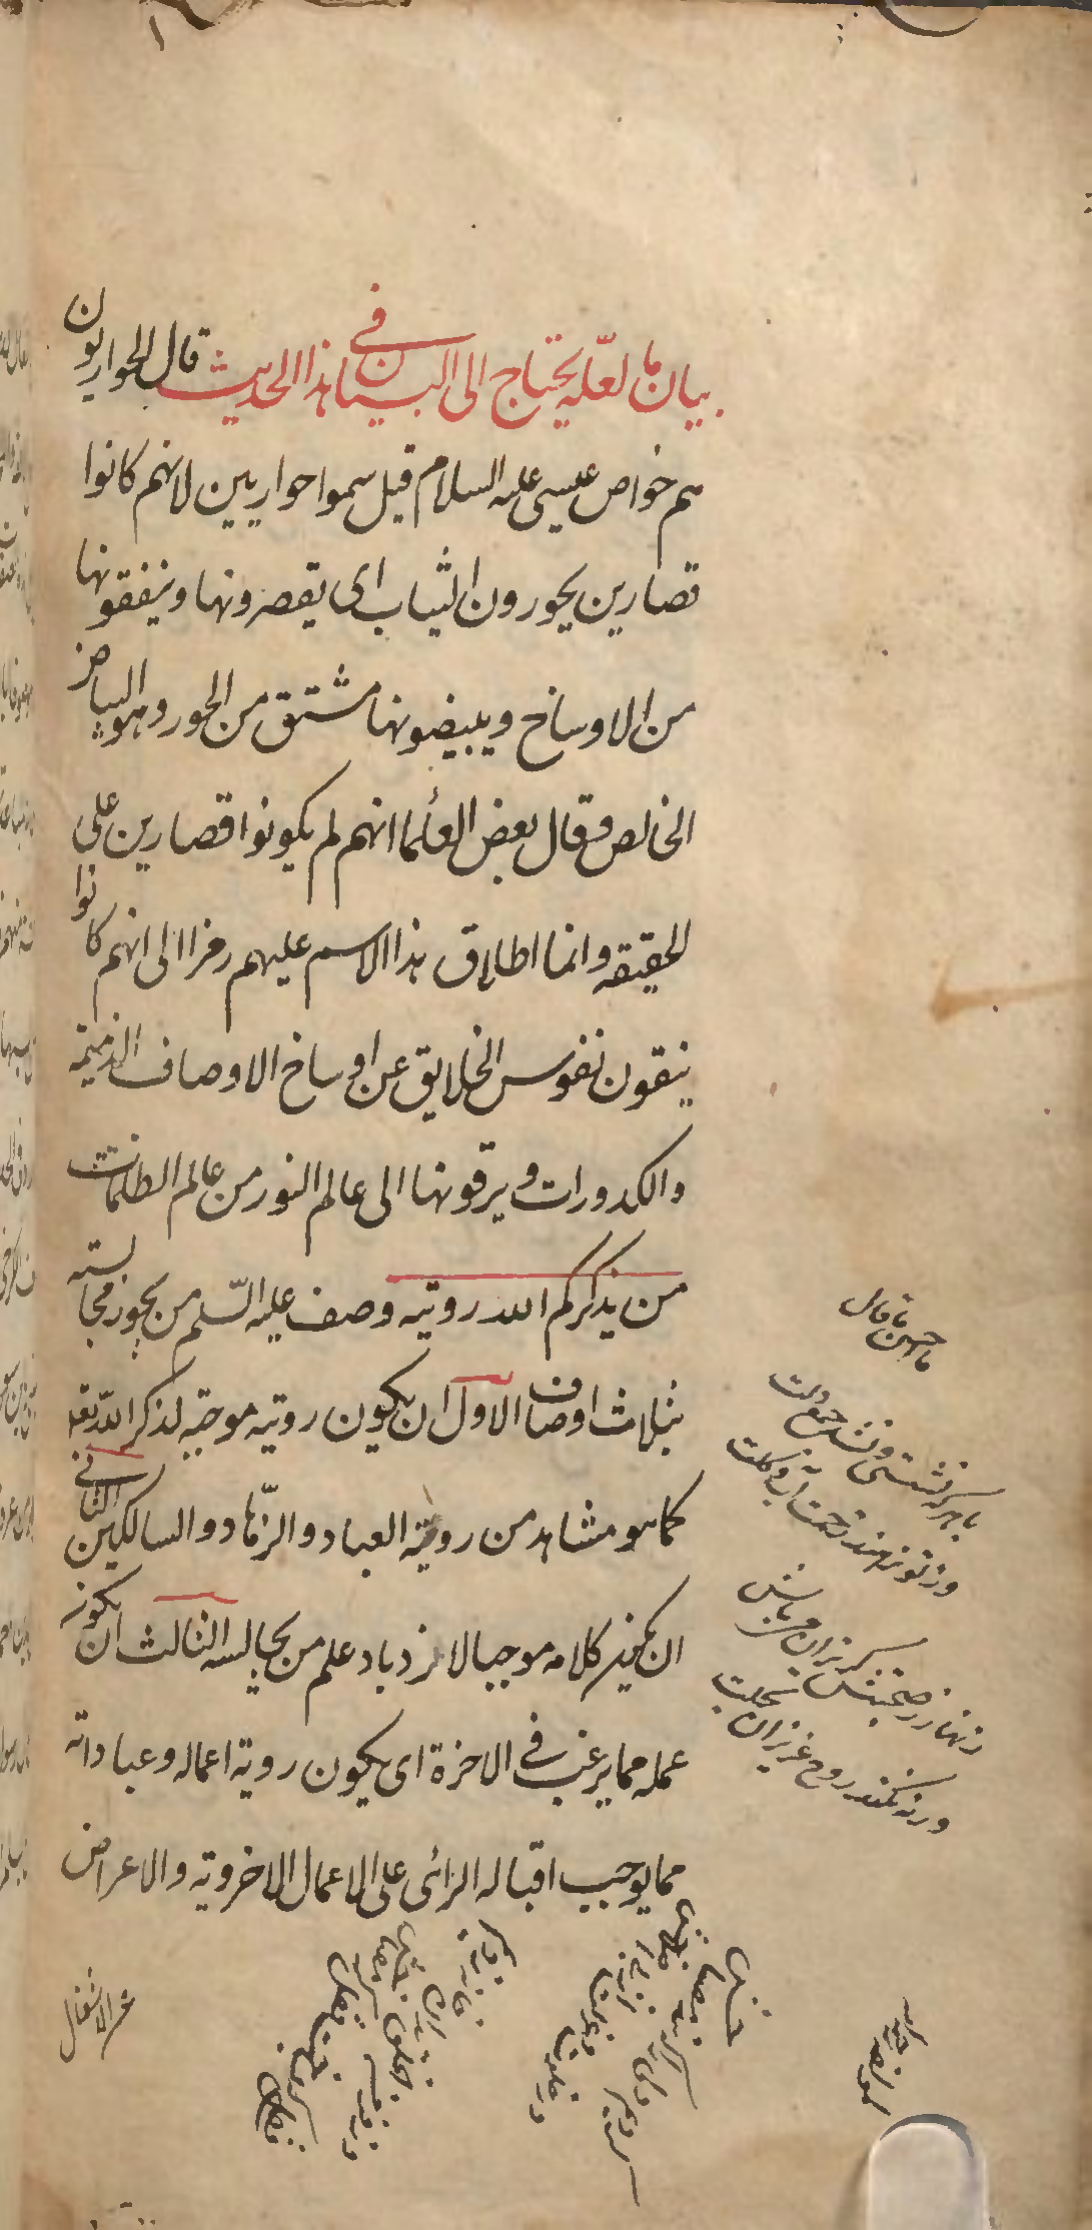 بيان ما لعلّه يحتاج الى البيان في هذا الحديث قال الحواريون
هم خواص عيسى عليه السلام قيل سموا حواريين لانهم كانوا
قصارين يحورون الثياب اى يقصرونها وينقونها
من الاوساخ ويبيضونها مشتق من الحور وهو البياض
الخالص وقال بعض العلما انهم لم يكونوا قصارين على
الحقيقه وانما اطلاق هذا الاسم عليهم رمزا الى انهم كانوا
ينقون نفوس الخلايق عن اوساخ الاوصاف الذميمة
والكدورات ويرقونها الى عالم النور من عالم الظلمات
من يذكركم الله رويته وصف عليه السّلم من يجوز مجالسته
بثلاث اوصاف الاول ان يكون رويته موجبه لذكر الله تعه
كما هو مشاهد من روية العباد والزهّاد والسالكين الثانى
ان يكون كلامه موجبا لازدياد علم من يجالسه الثالث ان يكون
عمله مما يرغب فى الاخرة اى يكون روية اعماله وعباداته
مما يوجب اقبال الرائى على الاعمال الاخرويه والاعراض
عن الاشغال
ما احسن ما قال
با هر که نشستی و نشد جمع دلت
وز تو نرمید زحمت آب و گلت
زنهار ز صحبتش گریزان می باش
ورنه نکند روح عزیزان بحلت